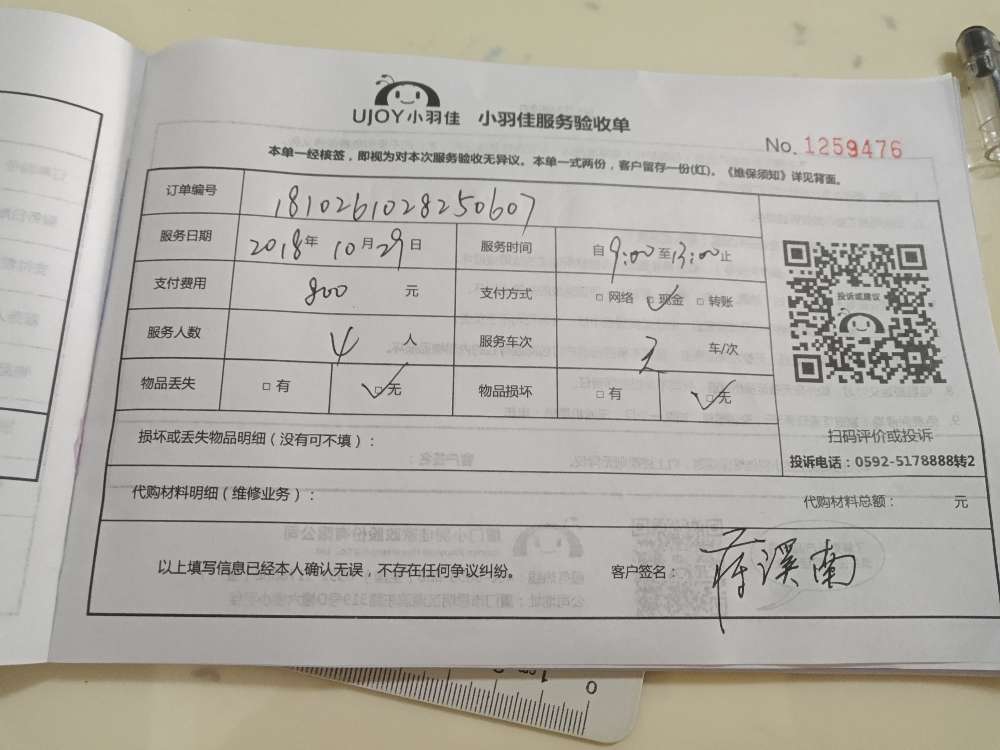 UJOY小羽佳 小羽佳服务验收单
No. 1259476
本单一经核签，即视为对本次服务验收无异议。本单一式两份，客户留存一份(红)。《维保须知》详见背面。
订单编号 1810261028250607
服务日期 2018年 10月29日 服务时间 自9:00至13:00止
支付费用 800 元 支付方式 □网络 ☑现金 □转账
投诉或建议
服务人数 4 人 服务车次 2 车/次
物品丢失 □有 ☑无 物品损坏 □有 ☑无
扫码评价或投诉
损坏或丢失物品明细（没有可不填）：
投诉电话：0592-5178888转2
代购材料明细（维修业务）：
代购材料总额： 元
以上填写信息已经本人确认无误，不存在任何争议纠纷。 客户签名： 溪南
0
1